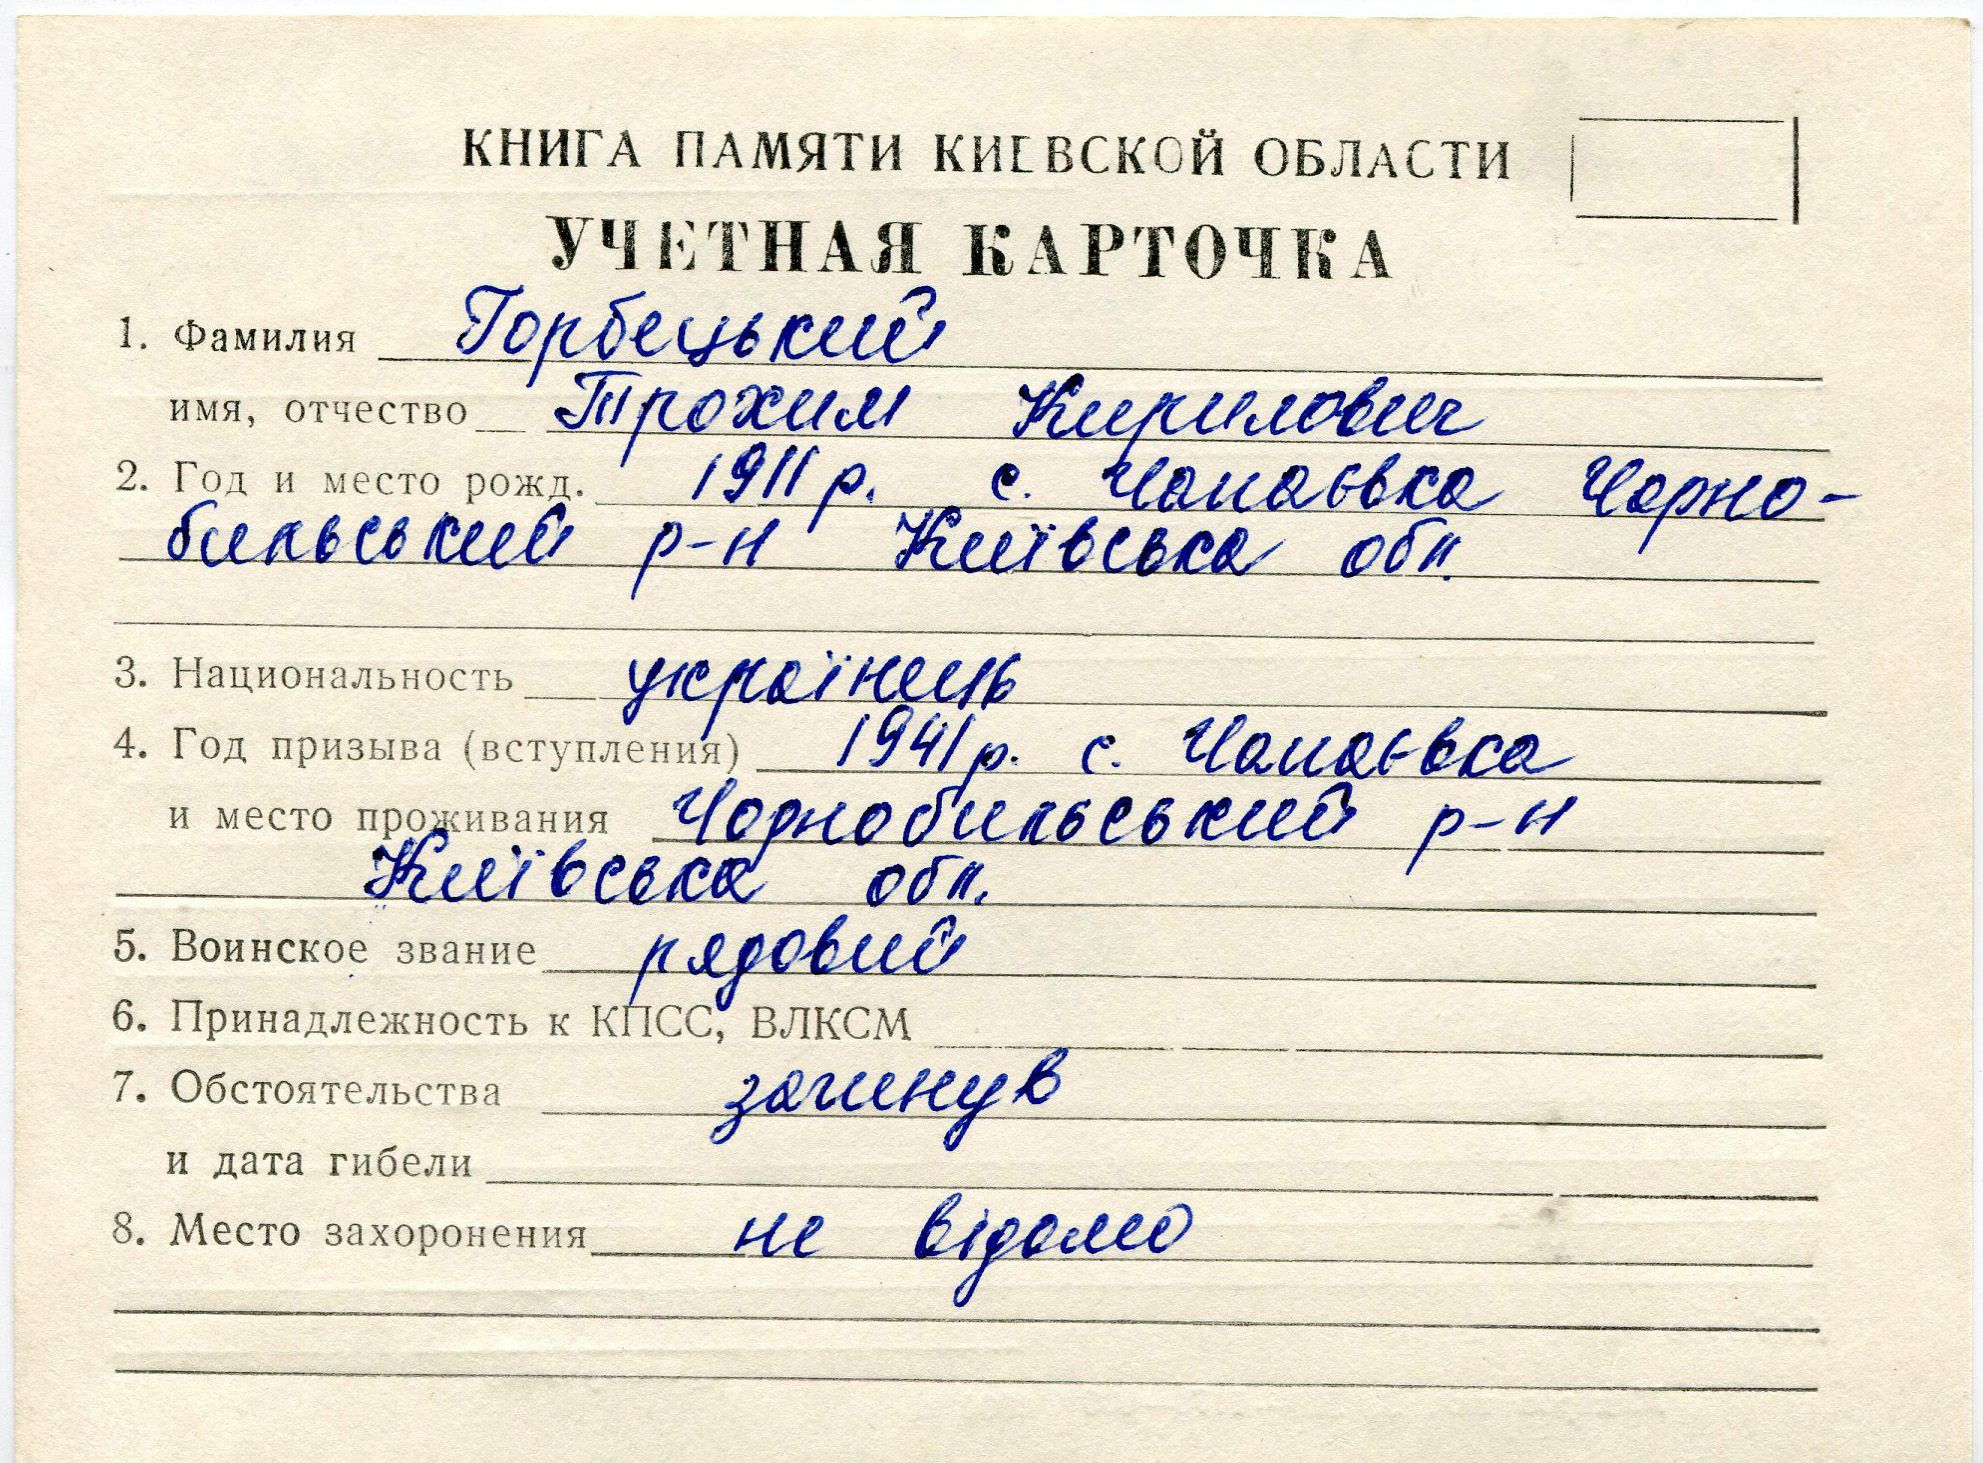 КНИГА ПАМЯТИ КИЕВСКОЙ ОБЛАСТИ
УЧЕТНАЯ КАРТОЧКА
1. Фамилия Горбецький
имя, отчество Трохим Кирилович
2. Год и место рожд. 1911 р. с. Чапаєвка Чорно-
бильський р-н Київська обл.
3. Национальность українець
4. Год призыва (вступления) 1941 р. с. Чапаєвка
и место проживания Чорнобильський р-н
Київська обл.
5. Воинское звание рядовий
6. Принадлежность к КПСС, ВЛКСМ
7. Обстоятельства загинув
и дата гибели
8. Место захоронения не відомо